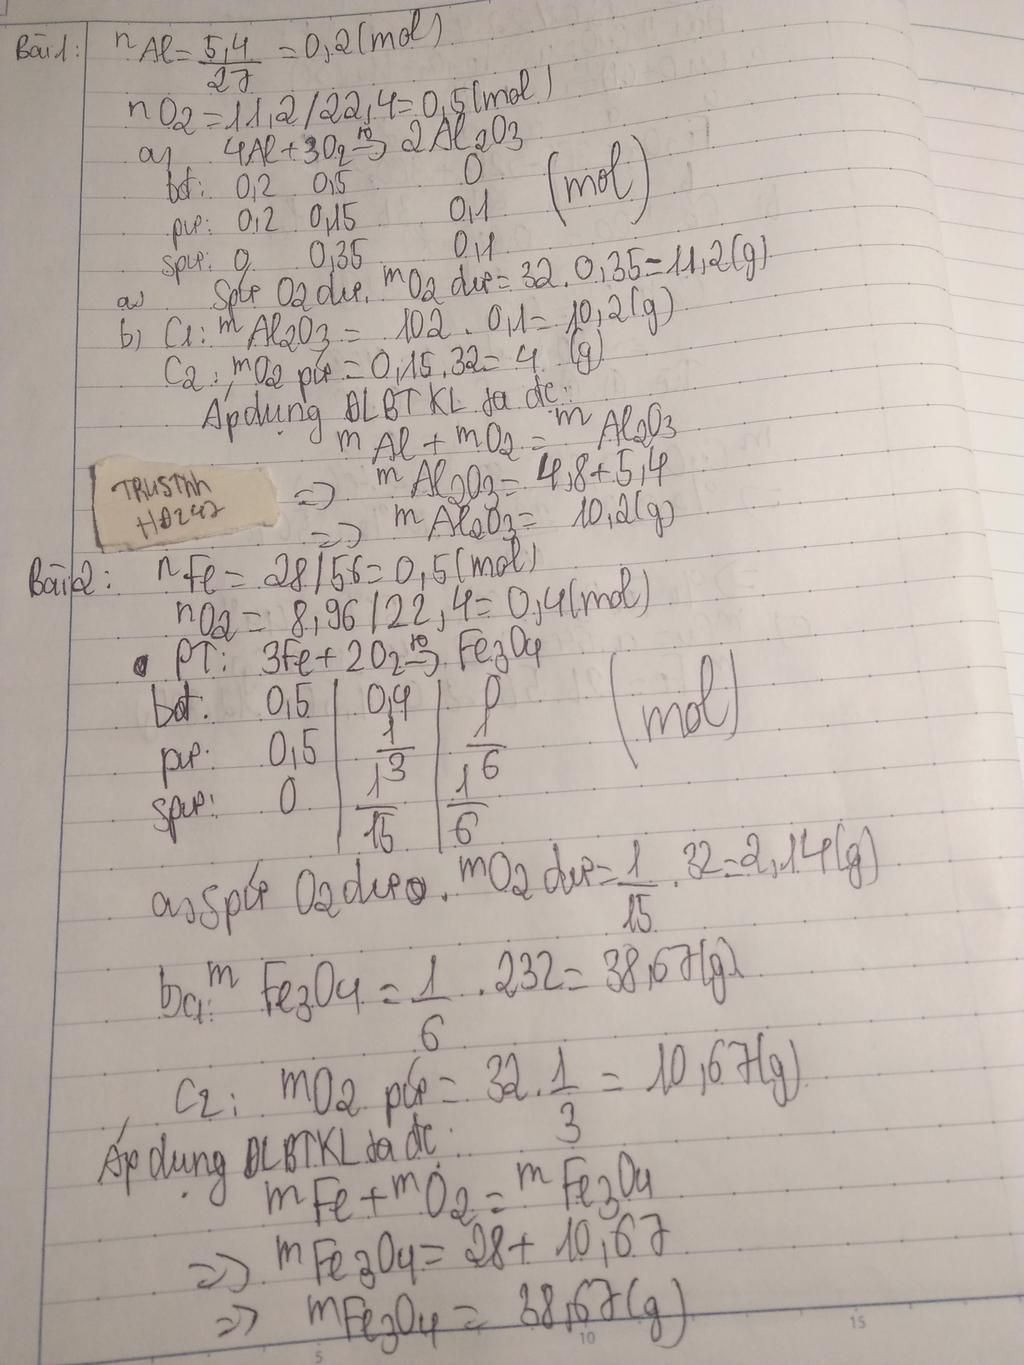 Bài 1: nAl = 5,4/27 = 0,2 (mol)
nO2 = 11,2/22,4 = 0,5 (mol)
a) 4Al + 3O2 →t0 2Al2O3
bđ: 0,2 0,5 0 (mol)
pư: 0,2 0,15 0,1
spư: 0 0,35 0,1
a) Spứ O2 dư. mO2 dư = 32. 0,35 = 11,2 (g)
b) C1: mAl2O3 = 102 . 0,1 = 10,2 (g)
C2: mO2 pứ = 0,15.32 = 4 (g)
Áp dụng ĐLBTKL ta đc:
mAl + mO2 = mAl2O3
=> mAl2O3 = 4,8 + 5,4
=> mAl2O3 = 10,2 (g)
TRUSTnh
HD247
Bài 2: nFe = 28/56 = 0,5 (mol)
nO2 = 8,96/22,4 = 0,4 (mol)
PT: 3Fe + 2O2 →t0 Fe3O4
bđ: 0,5 0,4 0 (mol)
pư: 0,5 1/3 1/6
spư: 0 1/15 1/6
a) spứ O2 dư. mO2 dư = 1/15 . 32 = 2,14 (g)
b) C1: mFe3O4 = 1/6 . 232 = 38,67 (g)
C2: mO2 pứ = 32. 1/3 = 10,67 (g)
Áp dụng ĐLBTKL ta đc:
mFe + mO2 = mFe3O4
=> mFe3O4 = 28 + 10,67
=> mFe3O4 = 38,67 (g)
5 10 15